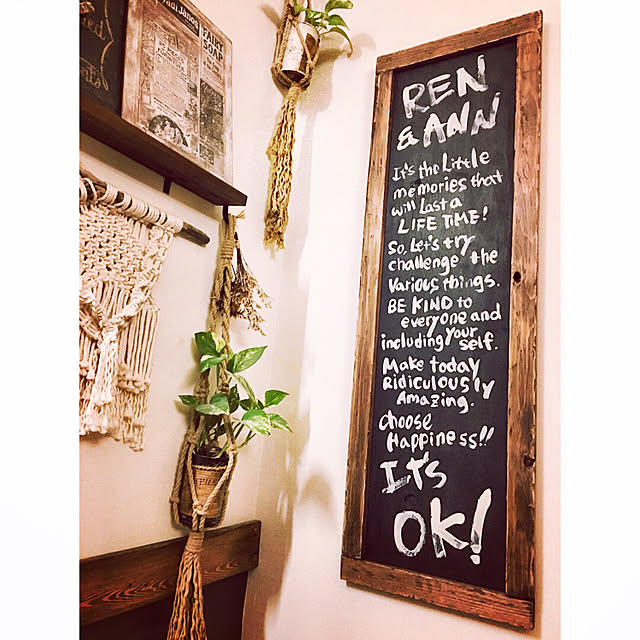 FAIRY
SOAP
REN
& ANN
It's the Little
memories that
will Last a
LIFE TIME!
So, Let's try
challenge the
various things.
BE KIND to
everyone and
including your
self.
Make today
Ridiculously
Amazing.
choose
Happiness!!
It's
OK!